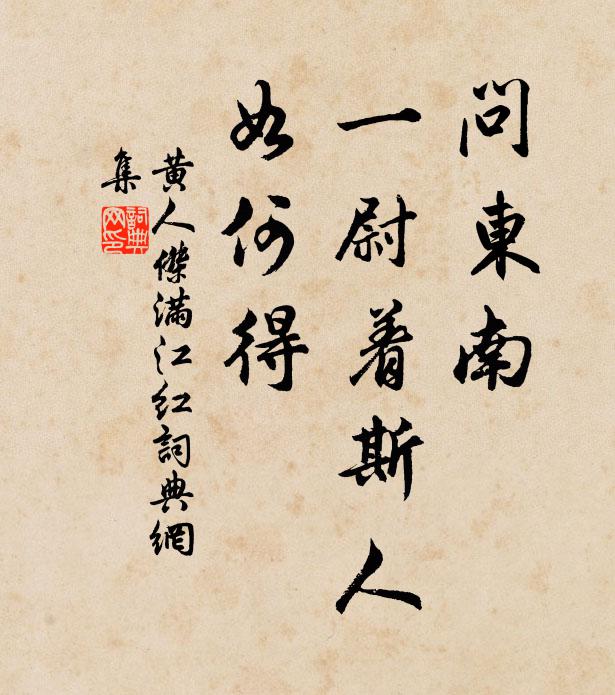 問東南
一尉着斯人
如何得
黄人傑滿江紅詞典網
集
詞典
网印